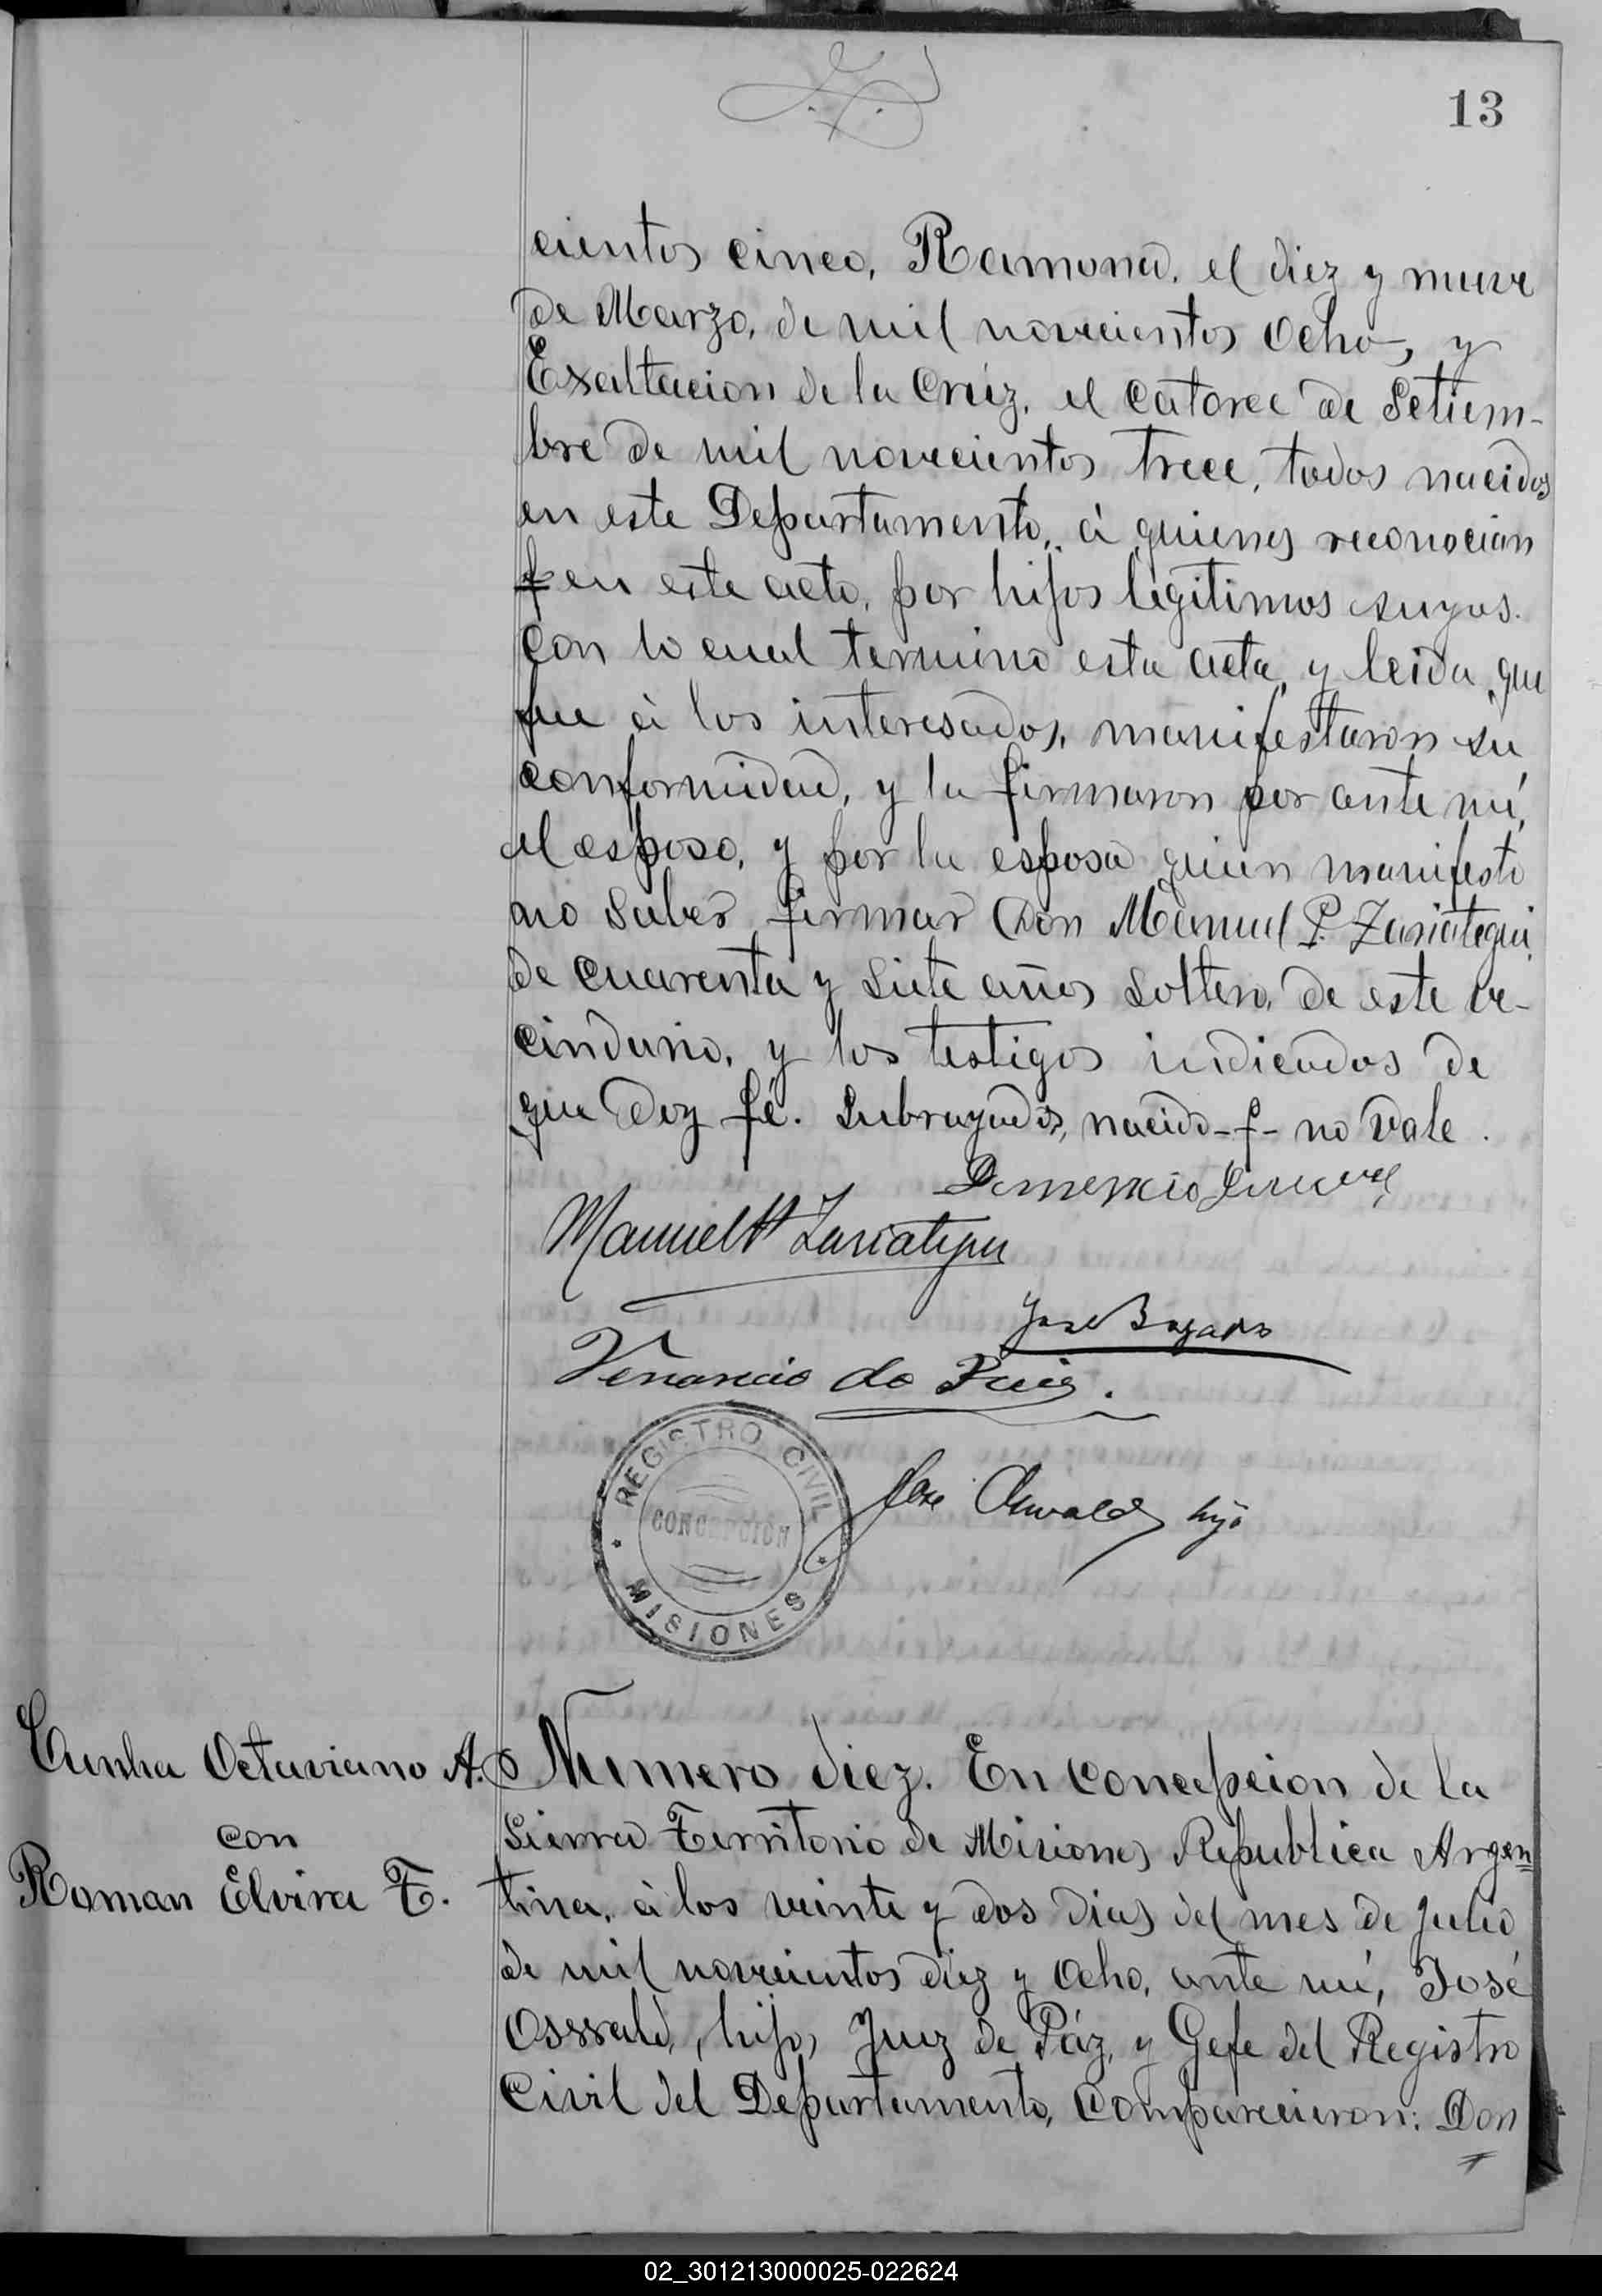 13
cientos cinco, Ramona, el diez y nueve
de Marzo, de mil novecientos ocho, y
Exaltacion de la Cruz, el catorce de Setiem-
bre de mil novecientos trece, todos nacidos
en este Departamento, á quienes reconocian
f en este acto, por hijos legitimos suyos.
Con lo cual termino esta acta, y leida que
fue á los interesados, manifestaron su
conformidad, y la firmaron por ante mí,
el esposo, y por la esposa quien manifesto
no saber firmar Don Manuel P. Zariategui
de cuarenta y siete años soltero, de este ve-
cindario, y los testigos indicados de
que doy fé. Subrayados, nacido-f- no vale.
Manuel P Zariategui
José
Venancio do Puig.
REGISTRO CIVIL
CONCEPCIÓN
MISIONES
José Oswald hijo
Cunha Octaviano A.
con
Roman Elvira T.
Numero diez. En Concepcion de la
Sierra Territorio de Misiones Republica Argen=
tina, á los veinte y dos dias del mes de Julio
de mil novecientos diez y ocho, ante mí, José
Osswald, hijo, Juez de Páz, y Gefe del Registro
Civil del Departamento, comparecieron: Don
02_301213000025-022624